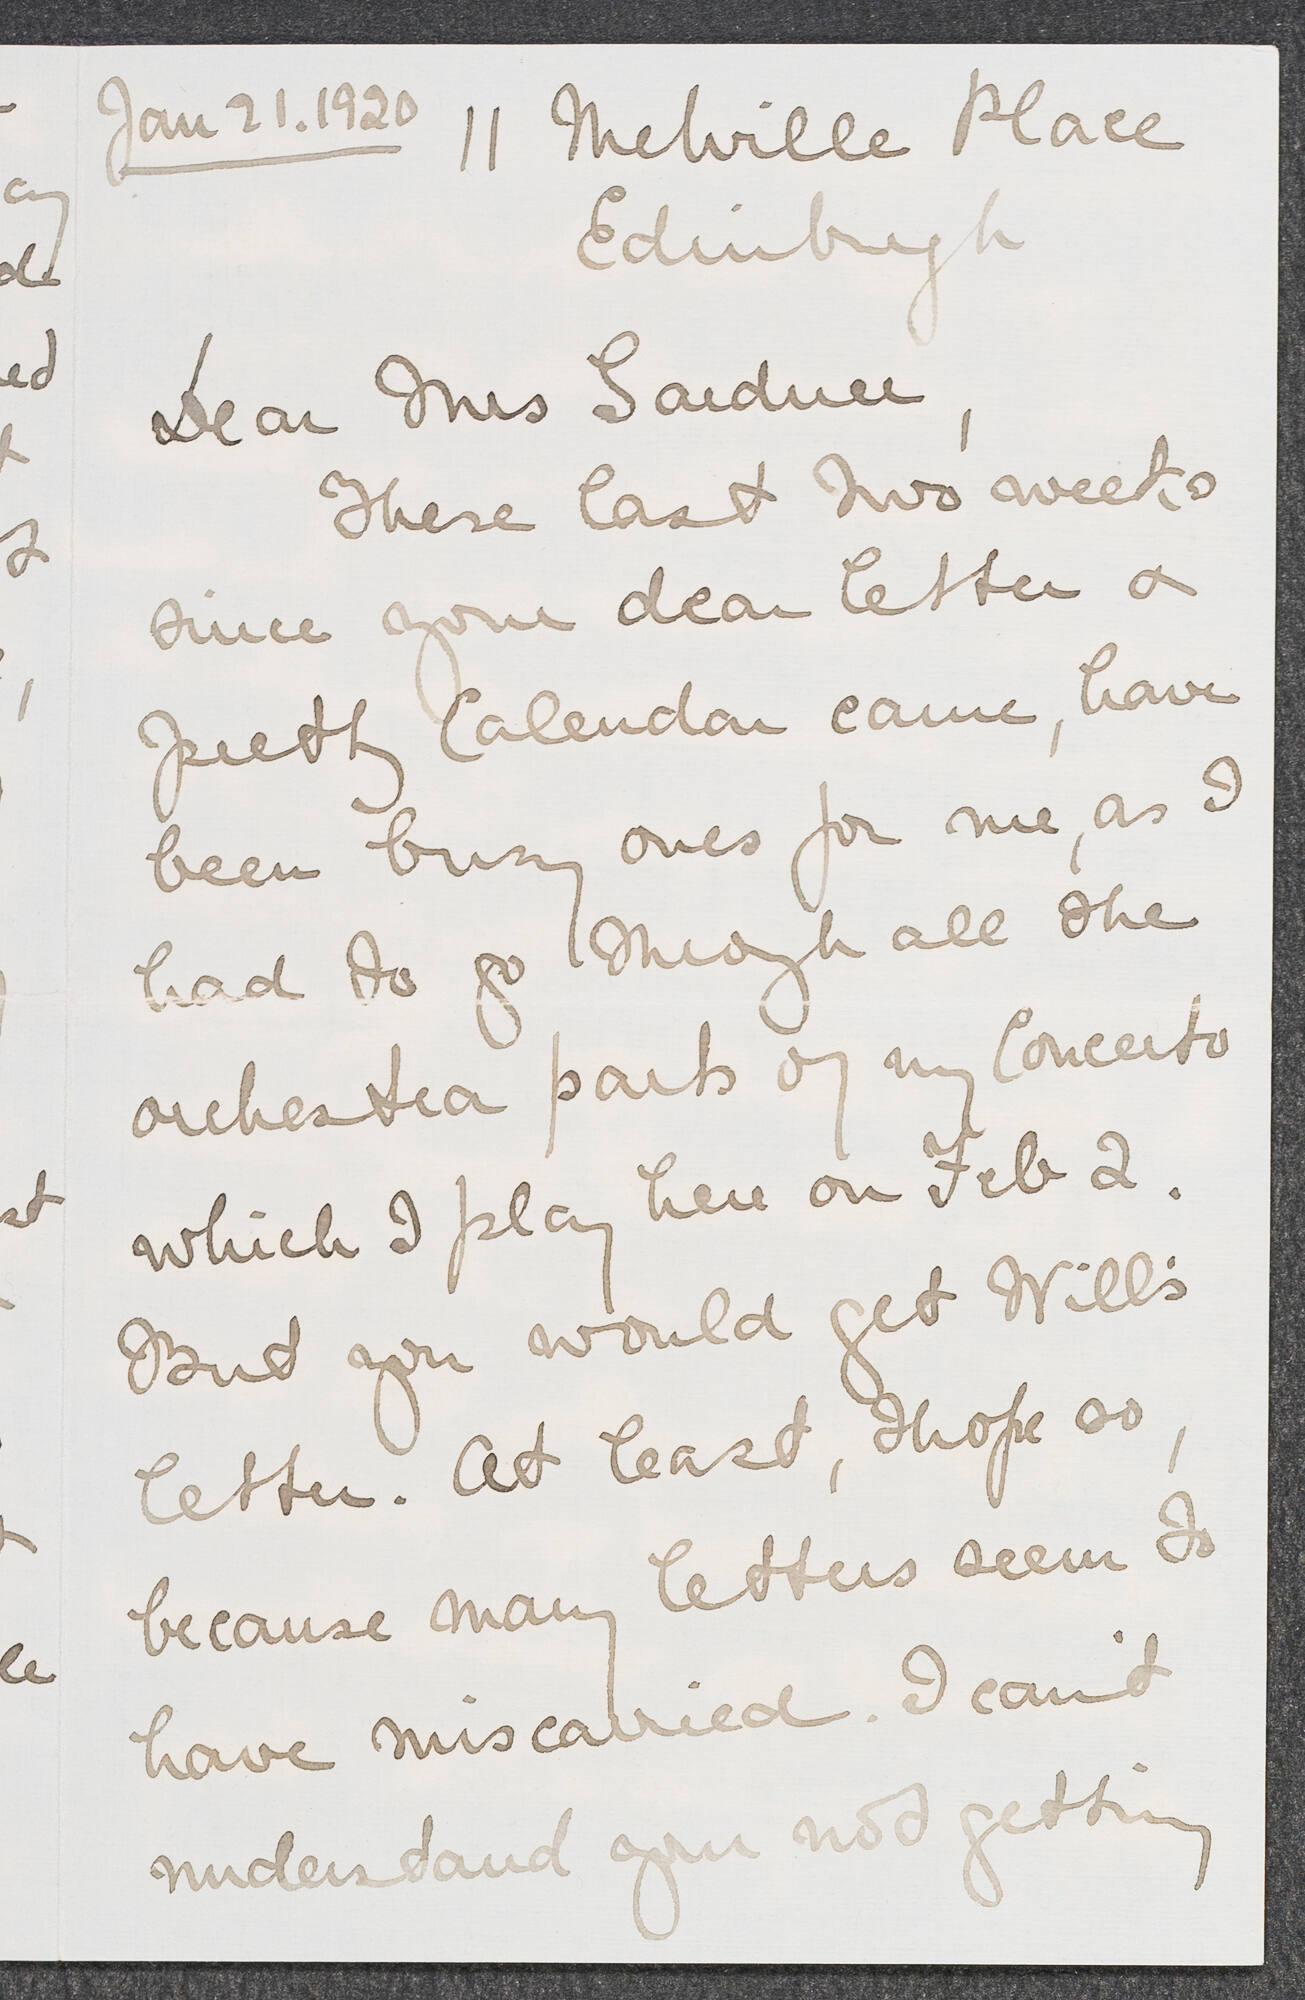 Jan 21. 1920 11 Melville Place
Edinburgh
Dear Mrs Gardner,
These last two weeks
since your dear letter &
pretty Calendar came, have
been busy ones for me, as I
had to go through all the
orchestra parts of my Concerto
which I play here on Feb 2.
But you would get Will's
letter. At least, I hope so,
because many letters seem to
have miscarried. I can't
understand your not getting